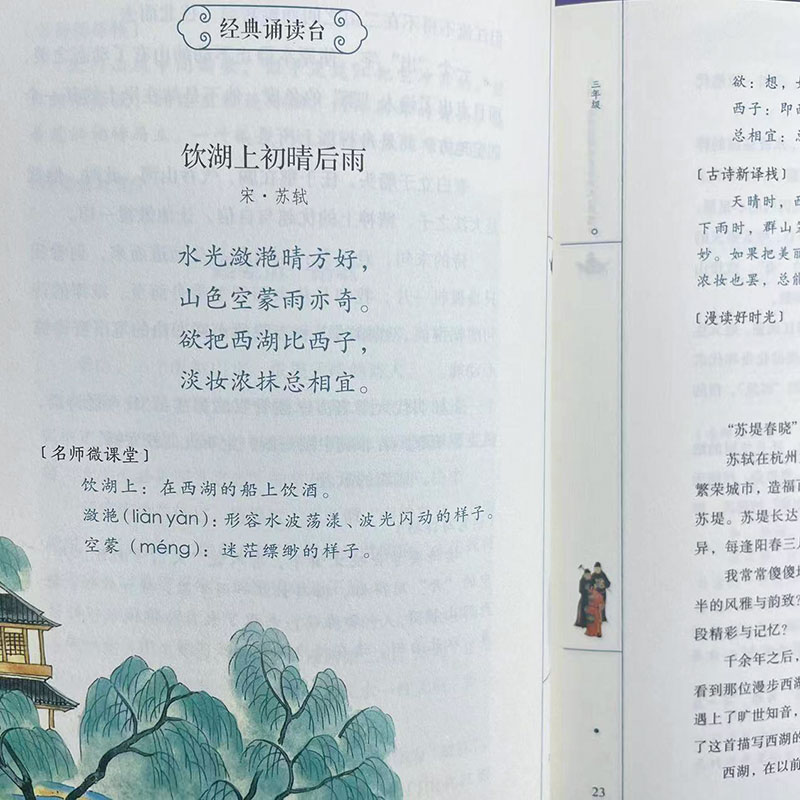 经典诵读台
饮湖上初晴后雨
宋·苏轼
水光潋滟晴方好，
山色空蒙雨亦奇。
欲把西湖比西子，
淡妆浓抹总相宜。
［名师微课堂］
饮湖上：在西湖的船上饮酒。
潋滟(liàn yàn)：形容水波荡漾、波光闪动的样子。
空蒙（méng）：迷茫缥缈的样子。
三年级
23
欲：想，
西子：即
总相宜：
［古诗新译栈］
天晴时，西
下雨时，群山
妙。如果把美丽
浓妆也罢，总能
［漫读好时光］
“苏堤春晓”
苏轼在杭州
繁荣城市，造福
苏堤。苏堤长达
异，每逢阳春三月
我常常傻傻地
半的风雅与韵致
段精彩与记忆？
千余年之后，
看到那位漫步西湖
遇上了旷世知音，
了这首描写西湖的
西湖，在以前